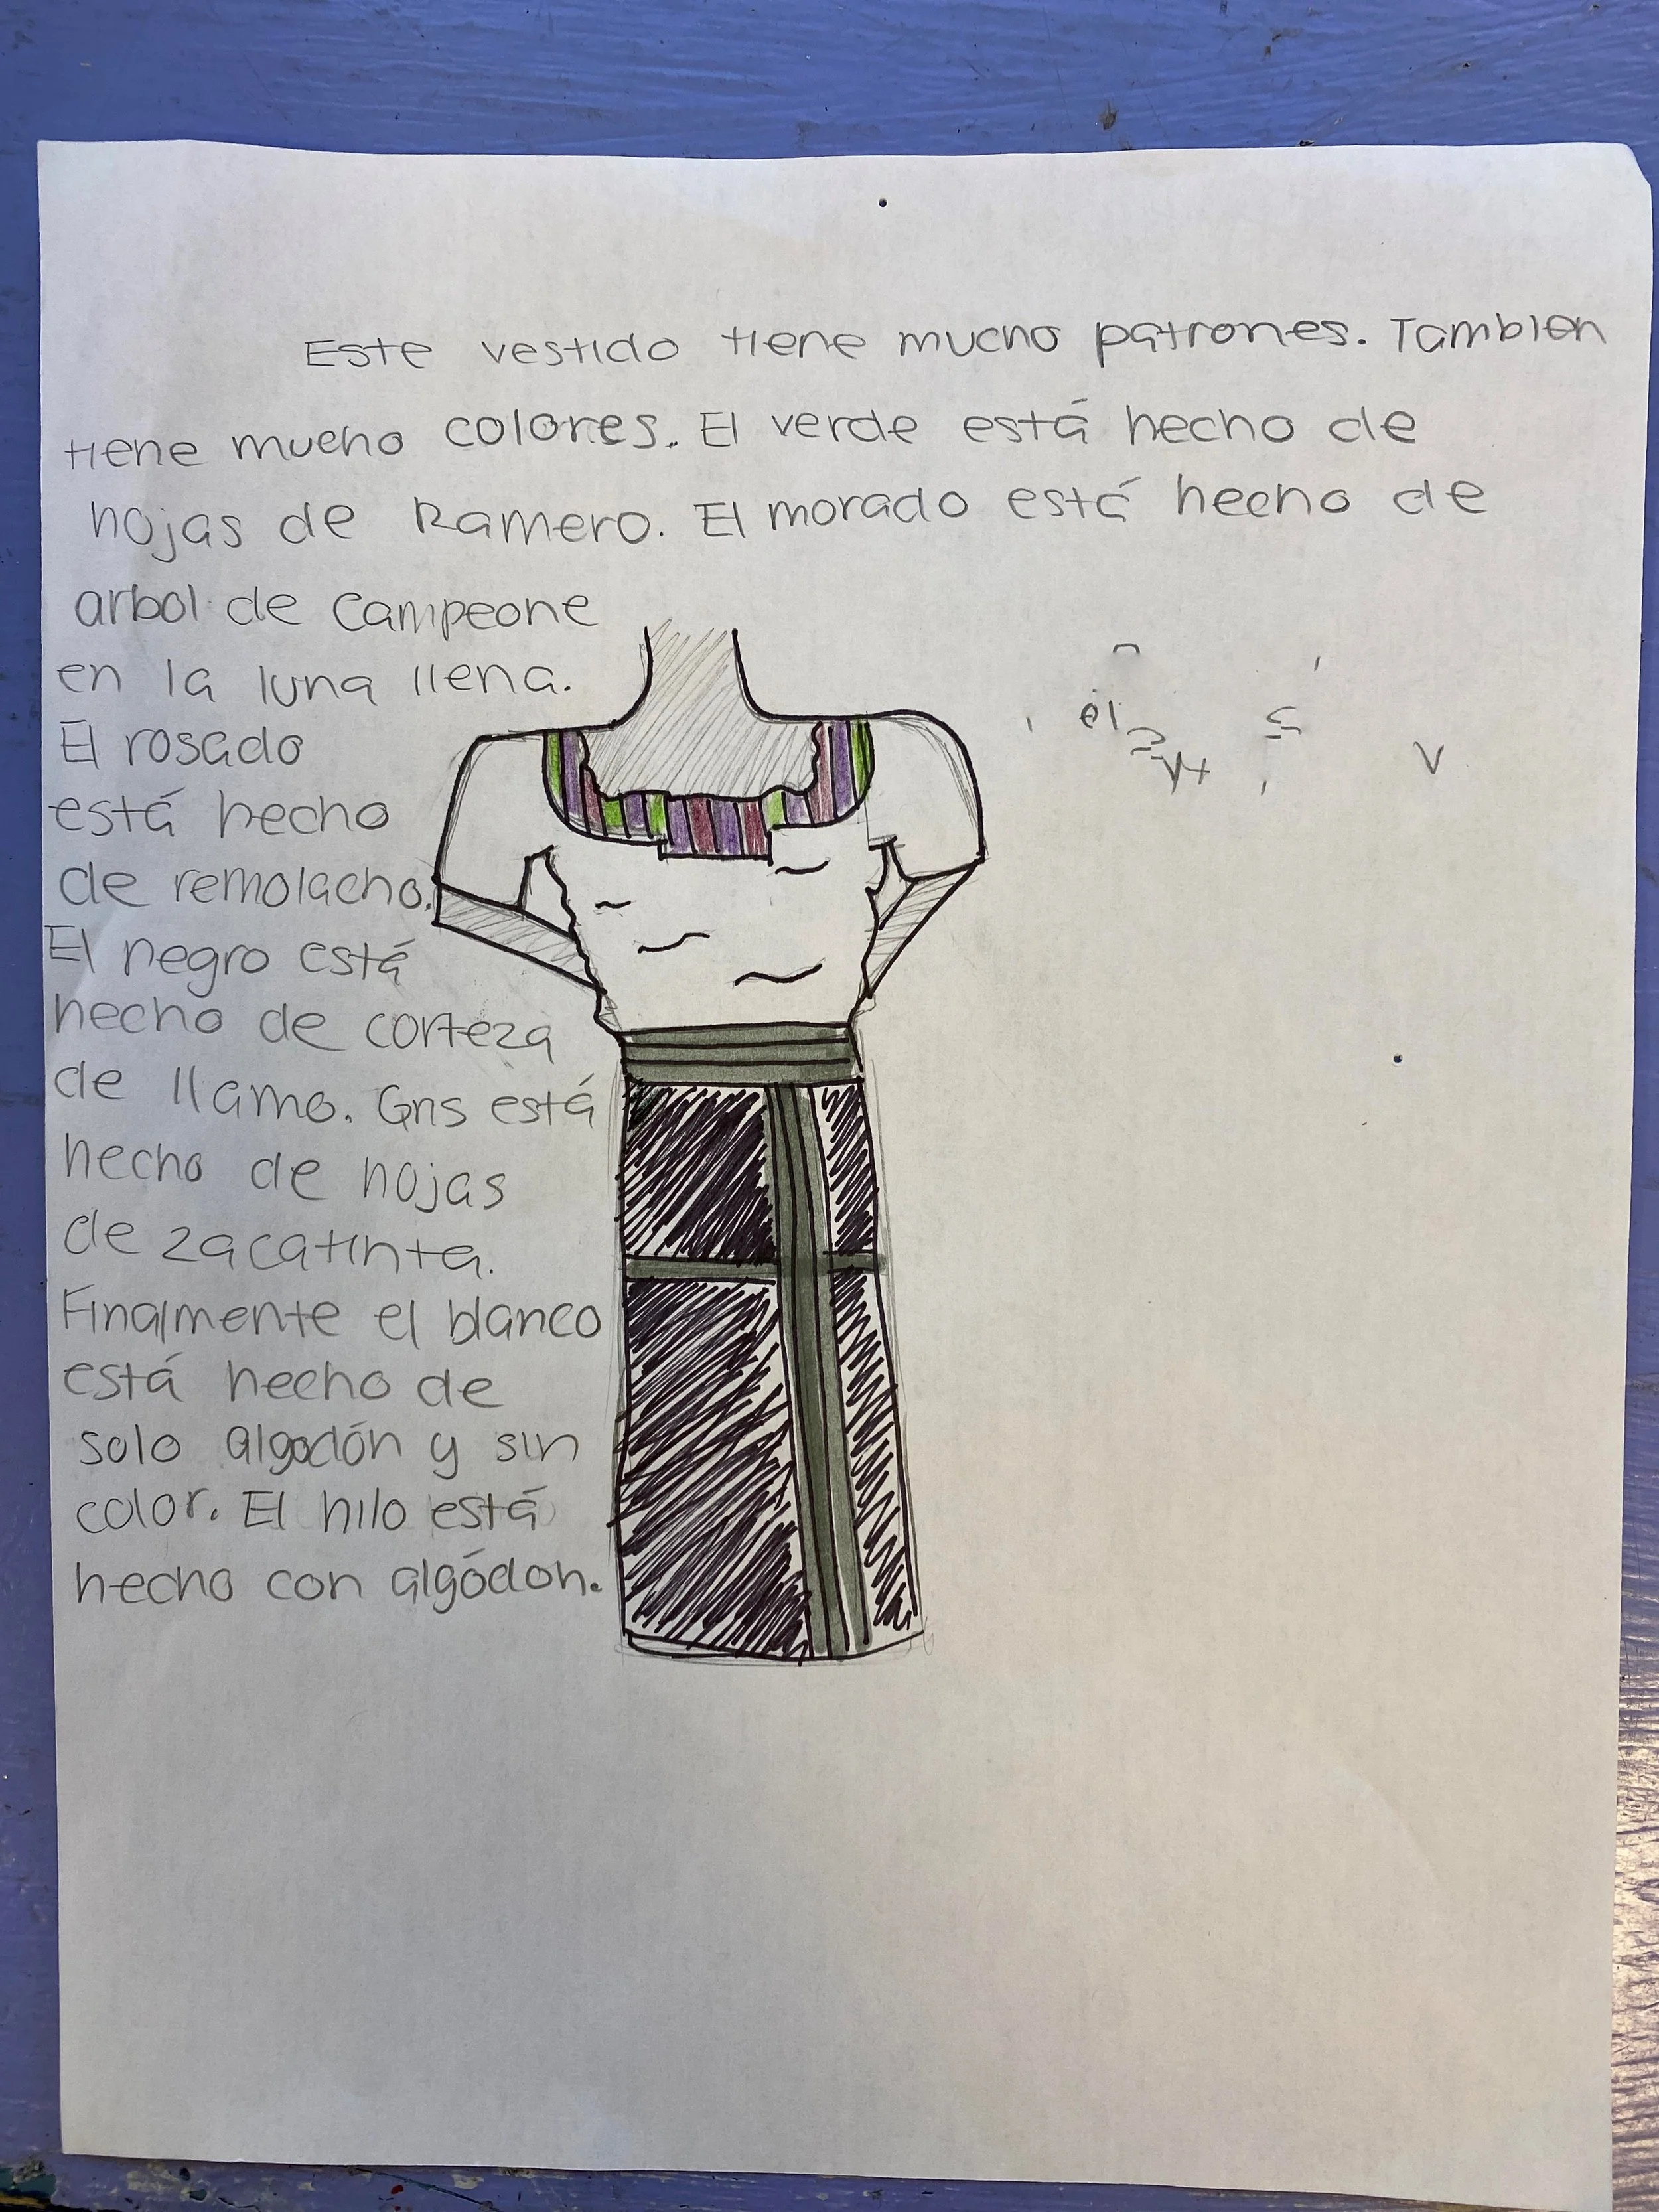 Este vestido tiene mucho patrones. Tambien
tiene mucho colores. El verde está hecho de
hojas de Ramero. El morado está hecho de
arbol de campeone
en la luna llena.
El rosado
está hecho
de remolacho.
El negro está
hecho de corteza
de llamo. Gris está
hecho de hojas
de zacatinta.
Finalmente el blanco
está hecho de
solo algodón y sin
color. El hilo está
hecho con algódon.